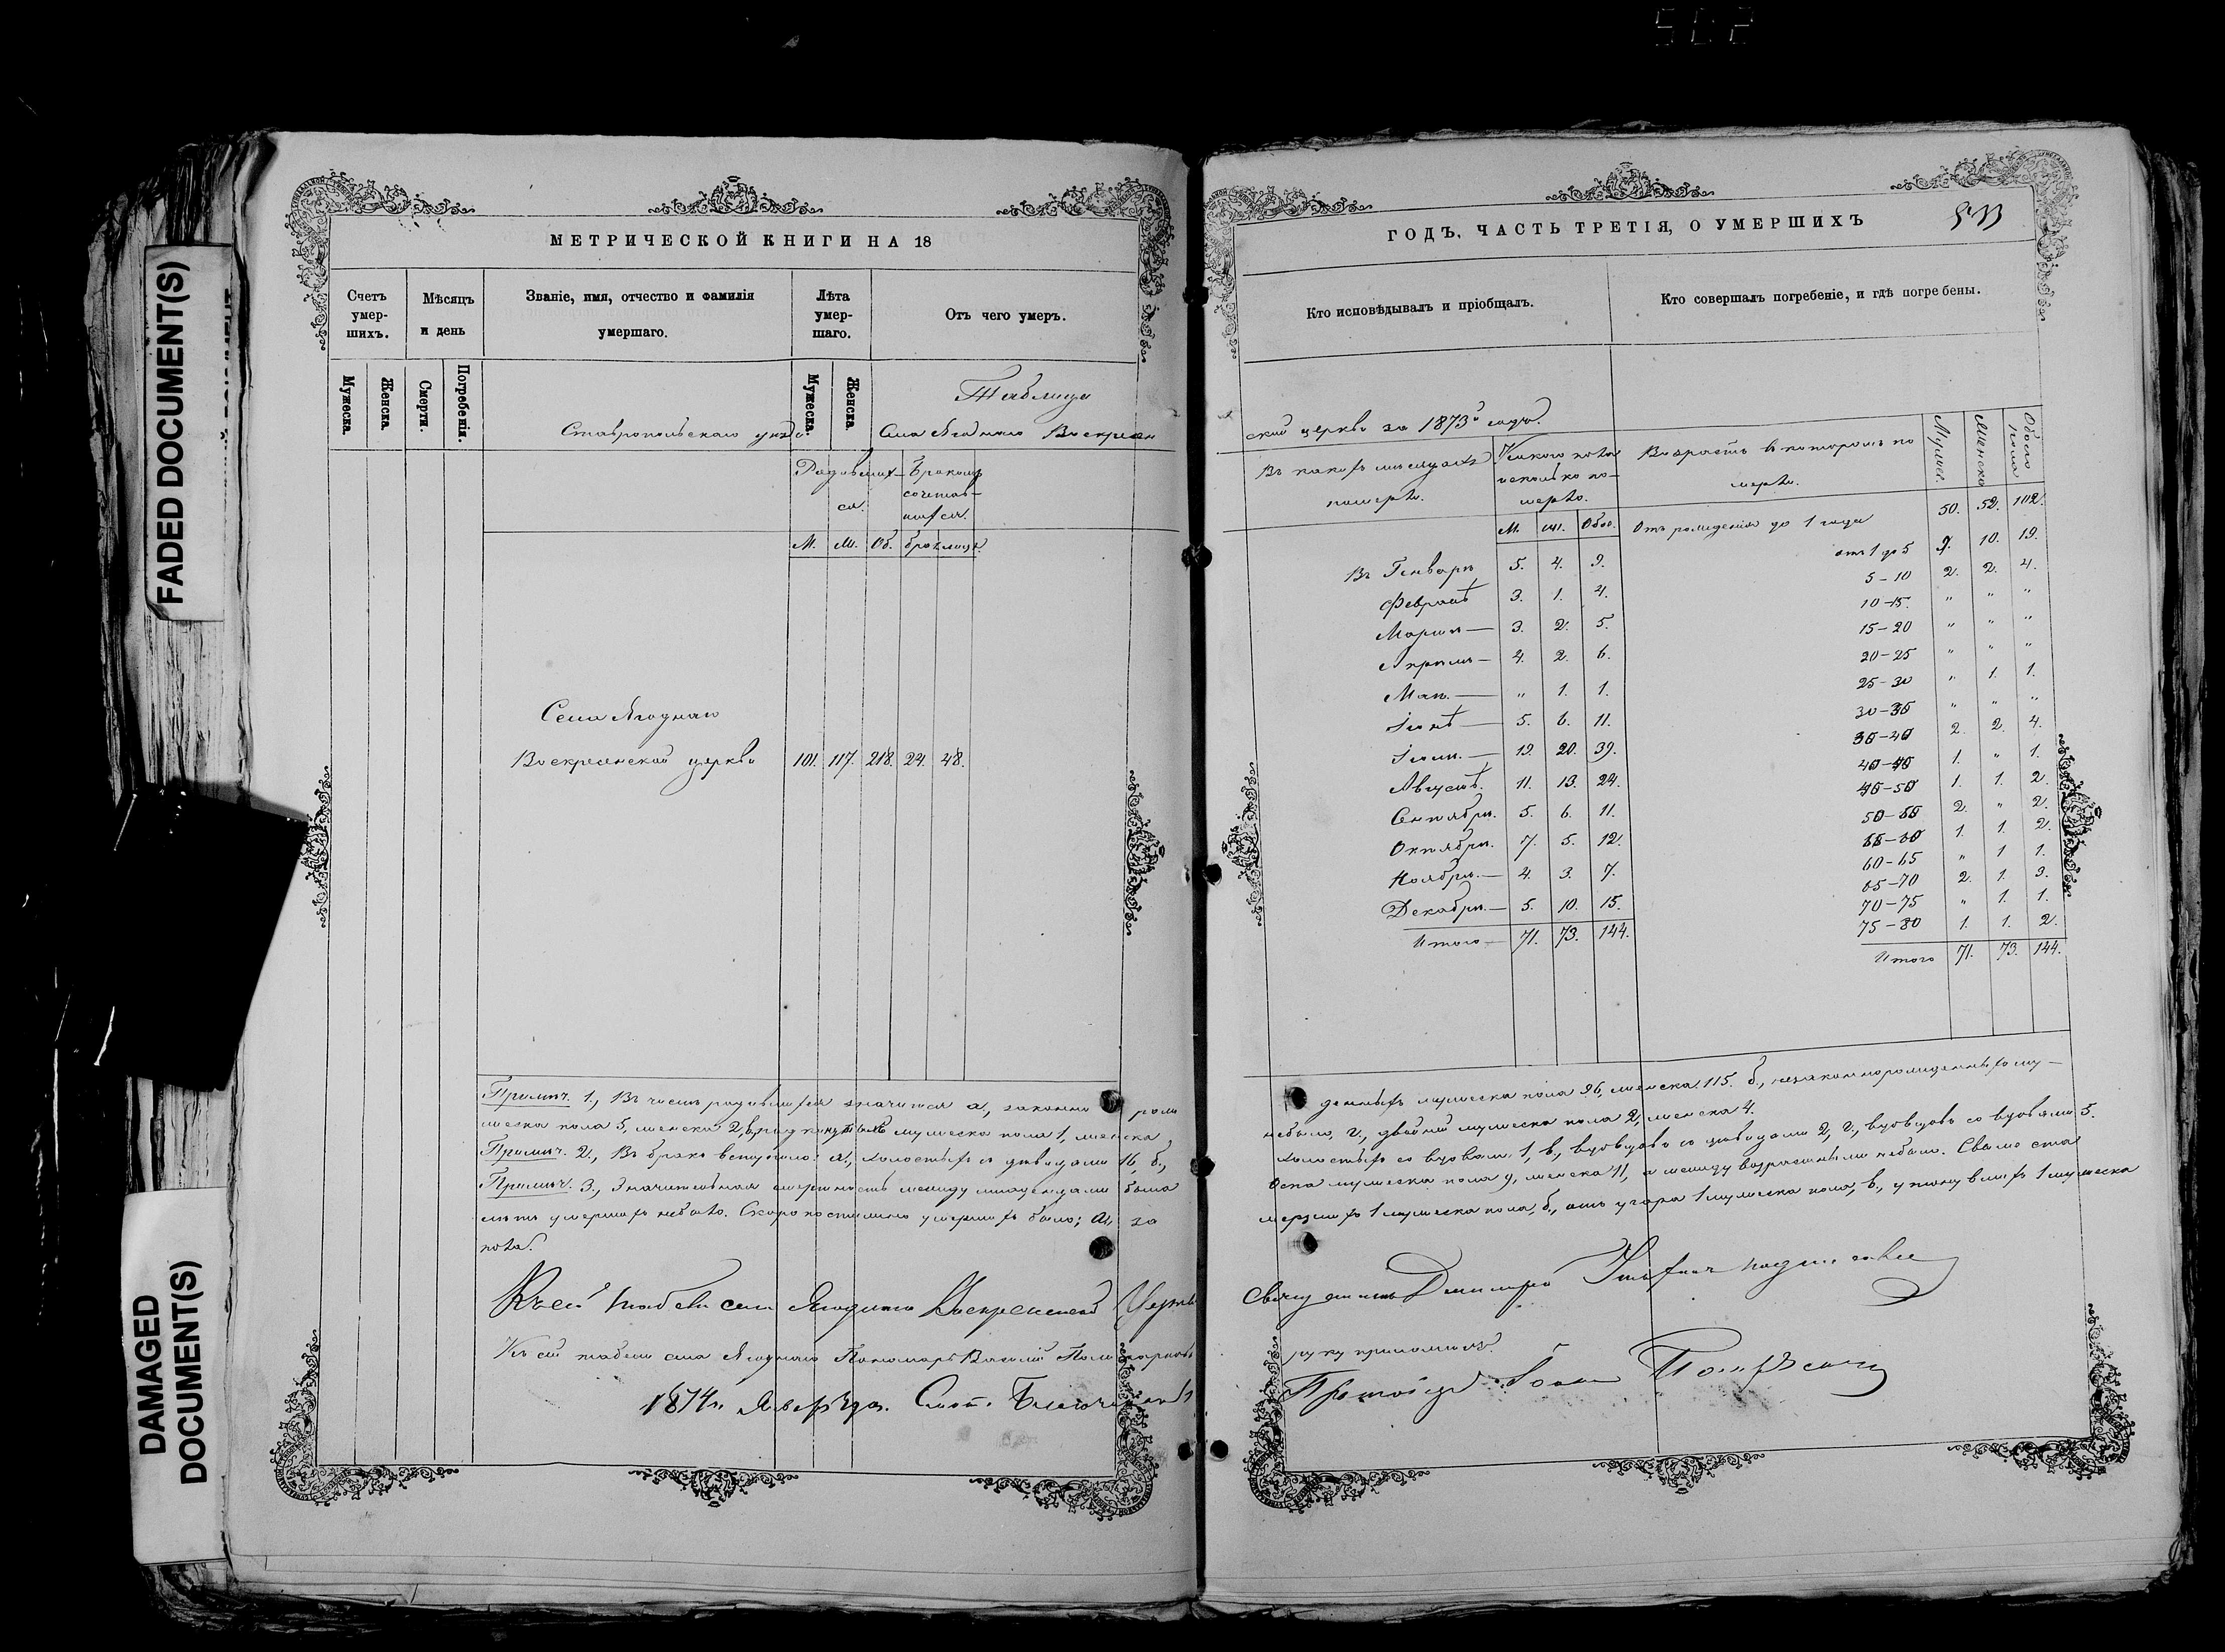 FADED DOCUMENT(S)
DAMAGED
DOCUMENT(S)
МЕТРИЧЕСКОЙ КНИГИ НА 18
Счетъ умер-шихъ.
Мѣсяцъ и день
Званіе, имя, отчество и фамилія умершаго.
Лѣта умер-шаго.
Отъ чего умеръ.
Мужеска.
Женска.
Смерти.
Погребенія.
Мужеска.
Женска.
Таблица
Ставропольскаго уѣзда
Села Ягоднаго Воскресен
Родивших-ся.
Бракомъ сочетав-шихся.
М. Ж. Об. бра. лицъ.
Села Ягоднаго
Воскресенской церкви 101. 117. 218. 24. 48.
Примѣч. 1., Въ числѣ родившихся значится а., законно рож
меска пола 5, женска 2, в., подкинутыхъ мужеска пола 1, женска
Примѣч. 2., Въ бракъ вступило: а., холостыхъ съ дѣвицами 16, б.,
Примѣч. 3., Значительная смертность между младенцами была
лѣтъ умершихъ небыло. Скоропостижно умершихъ было: а., за
пола.
Къ сей табели села Ягоднаго Воскресенской Церкви
Къ сей табели села Ягоднаго Пономарь Василій Поликарповъ
1874 г. Января дня. Свид. Благочинный
ГОДЪ, ЧАСТЬ ТРЕТІЯ, О УМЕРШИХЪ
Кто исповѣдывалъ и пріобщалъ.
Кто совершалъ погребеніе, и гдѣ погребены.
ской церкви за 1873й годъ.
Въ какихъ мѣсяцахъ померло.
Каждаго пола исколько по-мерло.
Возрастъ въ которомъ по мерло.
Мужеск.
Женска
Обоего пола
М. Ж. Обое.
Отъ рожденія до 1 года 50. 52. 102.
отъ 1 до 5 9. 10. 19.
Въ Генварѣ 5. 4. 9.
5-10 2. 2. 4.
Февралѣ 3. 1. 4.
10-15. " " "
Мартѣ 3. 2. 5.
15-20 " " "
Апрѣлѣ 4. 2. 6.
20-25 " " "
Маѣ " 1. 1.
25-30 " 1. 1.
Іюнѣ 5. 6. 11.
30-35 " " "
Іюлѣ 19. 20. 39.
35-40 2. 2. 4.
Августѣ 11. 13. 24.
40-45 1. " 1.
45-50 1. 1. 2.
Сентябрѣ 5. 6. 11.
50-55 2. " 2.
Октябрѣ 7. 5. 12.
55-60 1. 1. 2.
60-65 " 1 1.
Ноябрѣ 4. 3. 7.
65-70 2. 1. 3.
Декабрѣ 5. 10. 15.
70-75 " 1. 1.
75-80 1. 1. 2.
Итого 71. 73. 144.
Итого 71. 73. 144.
денныхъ мужеска пола 96, женска 115. б., незаконнорожденныхъ му-
небыло, г., двойни мужеска пола 2, женска 4.
холостыхъ со вдовами 1, в., вдовцовъ съ дѣвицами 2, г., вдовцовъ со вдовами 5.
Оспа мужеска пола 9, женска 11, а между возрастными небыло. Свыше ста
мерзшихъ 1 мужеска пола, б., отъ угара 1 мужеска пола, в., утонувшихъ 1 мужеска
Священникъ Димитрій
руку приложилъ.
Протоіерей Іоаннъ